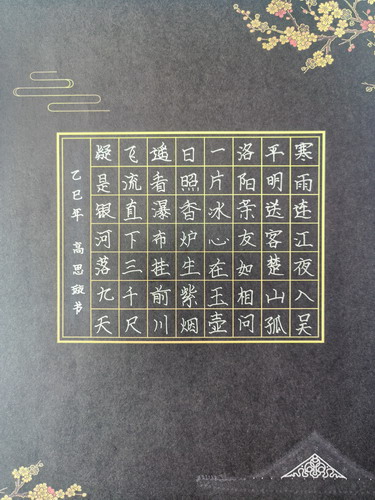 寒雨连江夜入吴
平明送客楚山孤
洛阳亲友如相问
一片冰心在玉壶
日照香炉生紫烟
遥看瀑布挂前川
飞流直下三千尺
疑是银河落九天
乙巳年 高思书